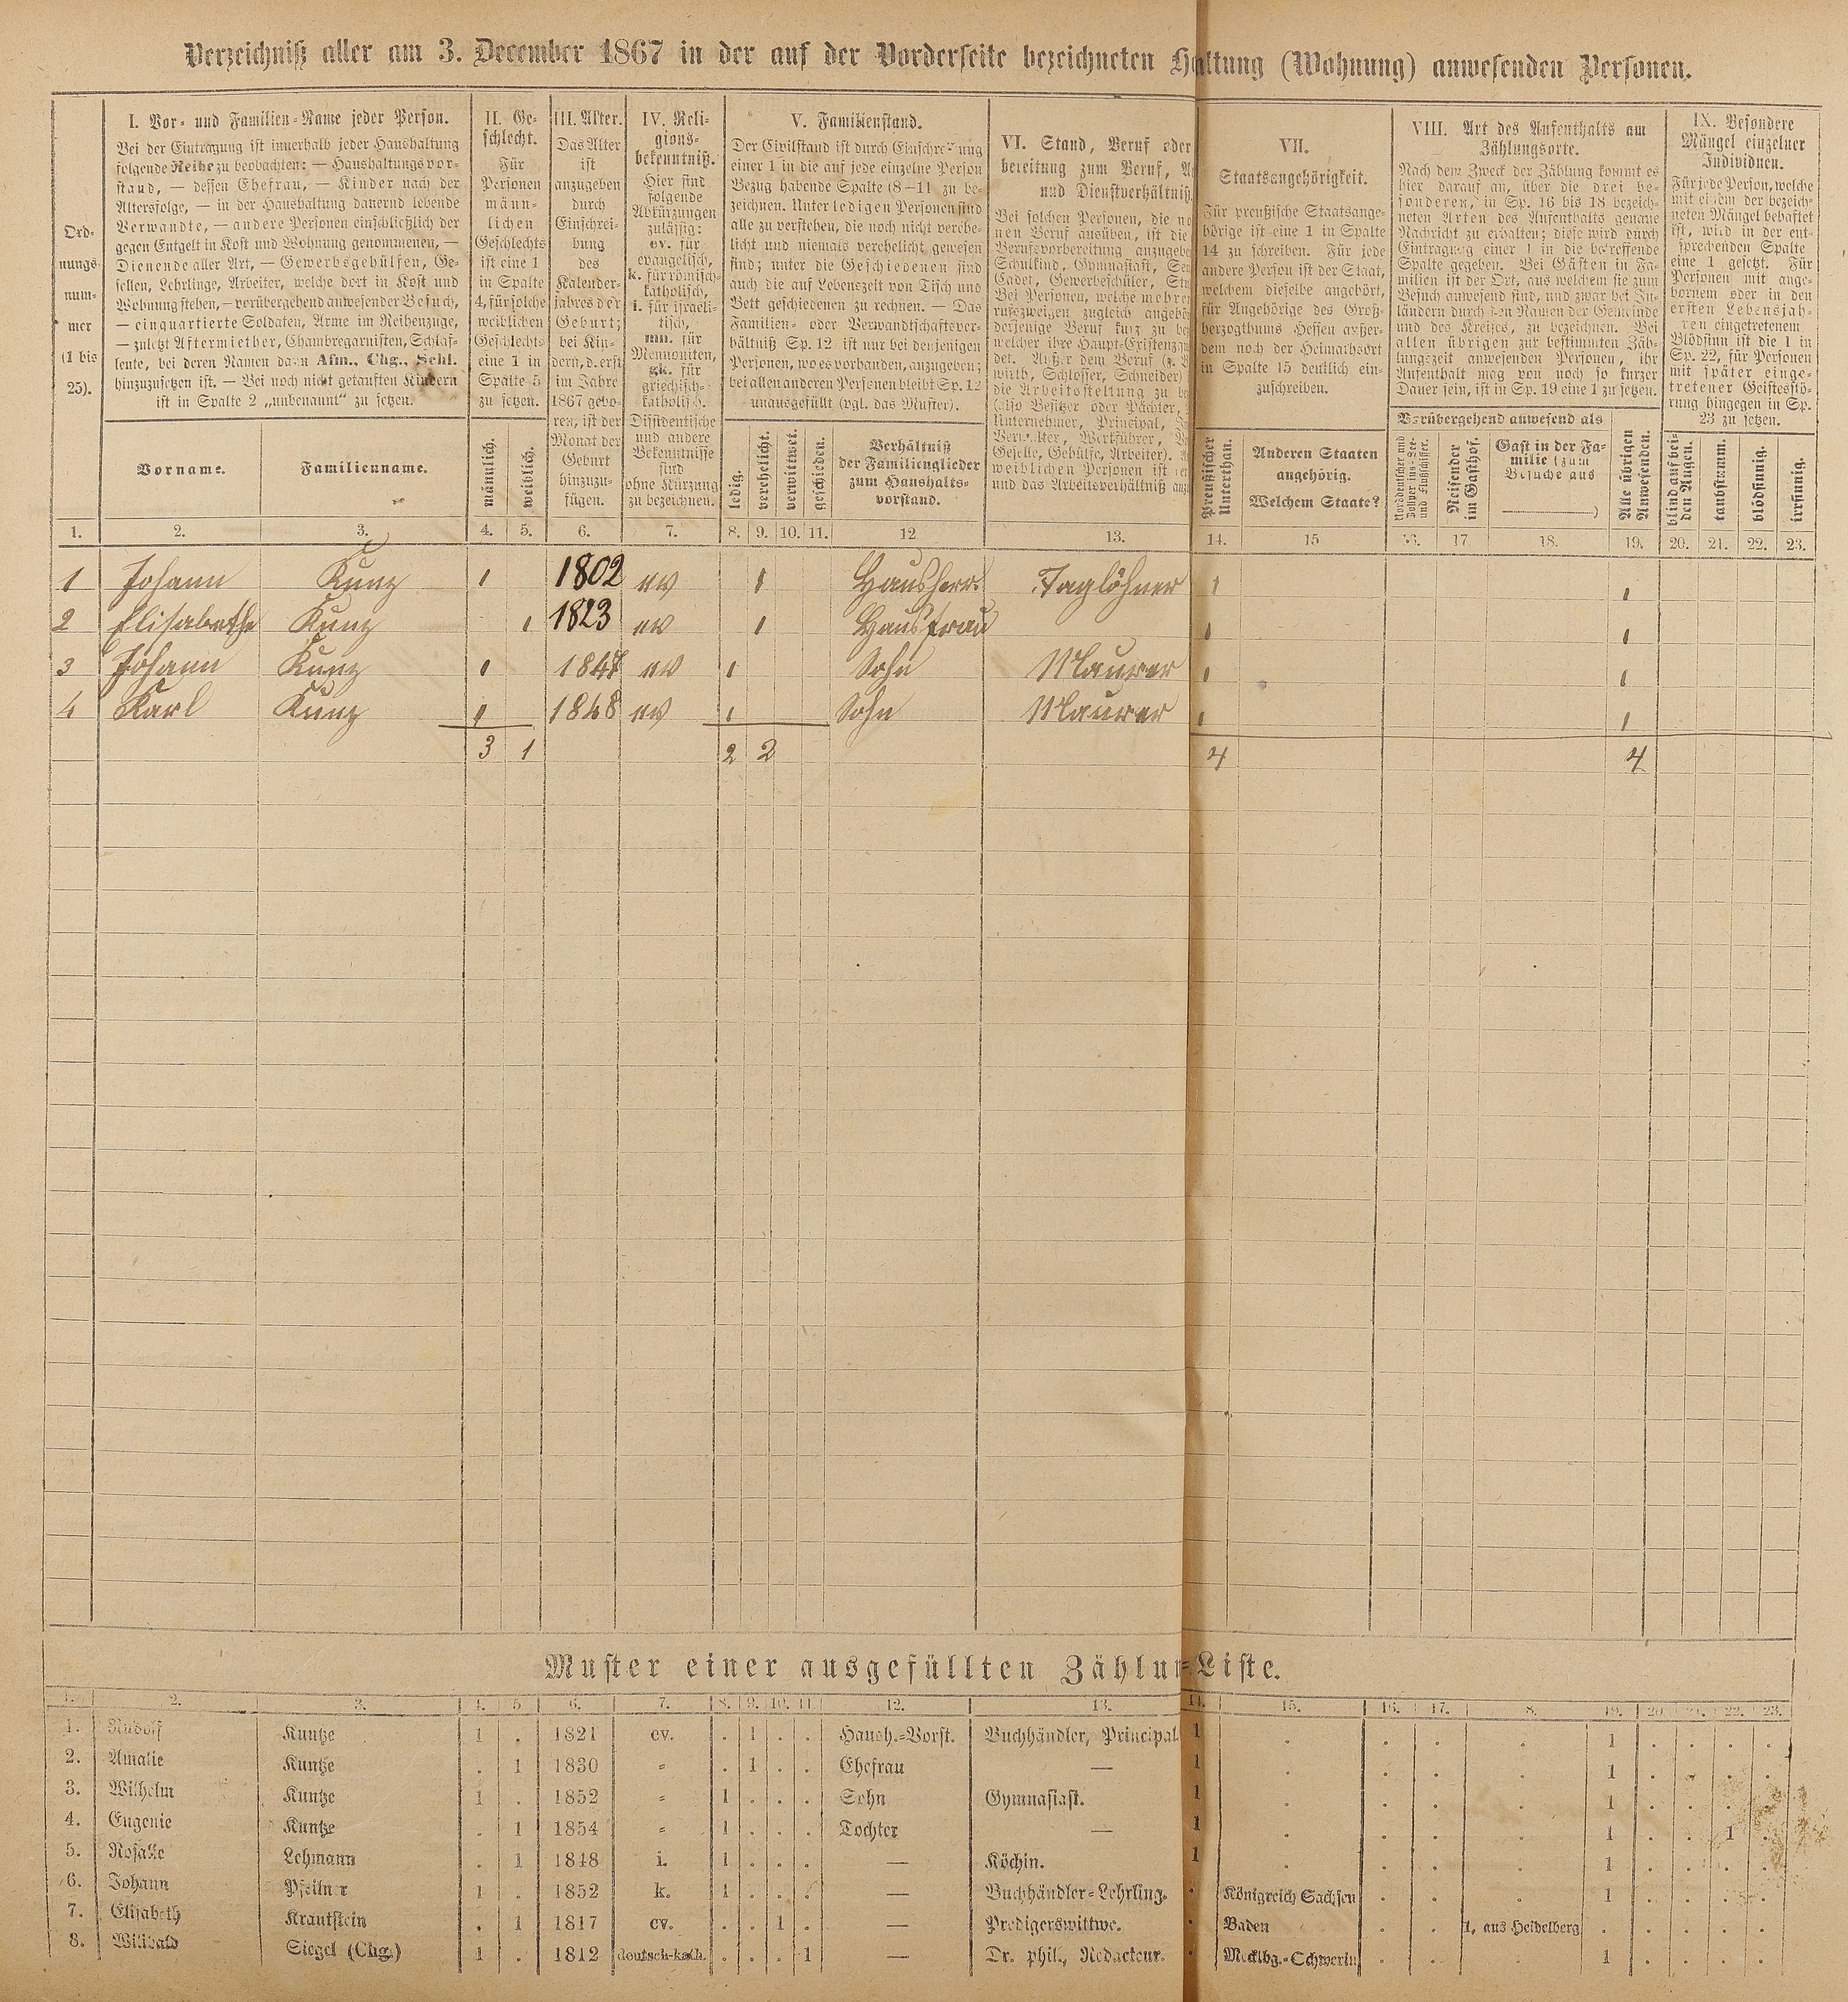 Verzeichniß aller am 3. December 1867 in der auf der Vorderseite bezeichneten Haltung (Wohnung) anwesenden Personen.
Ord-
nungs-
num-
mer
(1 bis
25).
I. Vor- und Familien-Name jeder Person.
Bei der Eintragung ist innerhalb jeder Haushaltung
folgende Reihe zu beobachten: — Haushaltungsvor-
stand, — dessen Ehefrau, — Kinder nach der
Altersfolge, — in der Haushaltung dauernd lebende
Verwandte, — andere Personen einschließlich der
gegen Entgelt in Kost und Wohnung genommenen, —
Dienende aller Art, — Gewerbsgehülfen, Ge-
sellen, Lehrlinge, Arbeiter, welche dort in Kost und
Wohnung stehen, — vorübergehend anwesender Besuch,
— einquartierte Soldaten, Arme im Reihenzuge,
— zuletzt Aftermiether, Chambregarnisten, Schlaf-
leute, bei deren Namen dann Afm., Chg., Schl.
hinzuzusetzen ist. — Bei noch nicht getauften Kindern
ist in Spalte 2 „unbenannt“ zu setzen.
Vorname. Familienname.
II. Ge-
schlecht.
Für
Personen
männ-
lichen
Geschlechts
ist eine 1
in Spalte
4, für solche
weiblichen
Geschlechts
eine 1 in
Spalte 5
zu setzen.
männlich. weiblich.
III. Alter.
Das Alter
ist
anzugeben
durch
Einschrei-
bung
des
Kalender-
jahres der
Geburt;
bei Kin-
dern, d. erst
im Jahre
1867 gebo-
ren, ist der
Monat der
Geburt
hinzuzu-
fügen.
IV. Reli-
gions-
bekenntniß.
Hier sind
folgende
Abkürzungen
zulässig:
ev. für
evangelisch,
k. für römisch-
katholisch,
i. für israeli-
tisch,
mn. für
Mennoniten,
gk. für
griechisch-
katholisch.
Dissidentische
und andere
Bekenntnisse
sind
ohne Kürzung
zu bezeichnen.
V. Familienstand.
Der Civilstand ist durch Einschreibung
einer 1 in die auf jede einzelne Person
Bezug habende Spalte (8—11) zu be-
zeichnen. Unter ledigen Personen sind
alle zu verstehen, die noch nicht verehe-
licht und niemals verehelicht gewesen
sind; unter die Geschiedenen sind
auch die auf Lebenszeit von Tisch und
Bett geschiedenen zu rechnen. — Das
Familien- oder Verwandtschaftsver-
hältniß Sp. 12 ist nur bei denjenigen
Personen, wo es vorhanden, anzugeben;
bei allen anderen Personen bleibt Sp. 12
unausgefüllt (vgl. das Muster).
ledig. verehelicht. verwittwet. geschieden.
Verhältniß
der Familienglieder
zum Haushalts-
vorstand.
VI. Stand, Beruf oder
bereitung zum Beruf, A
und Dienstverhältniß
Bei solchen Personen, die no
nen Beruf ausüben, ist die
Berufsvorbereitung anzugebe
Schulkind, Gymnasiast, Sem
Cadet, Gewerbeschüler, Stu
Bei Personen, welche mehrer
rufszweigen zugleich angehör
derjenige Beruf kurz zu be
welcher ihre Haupt-Existenz
det. Außer dem Beruf (z. B
wirth, Schlosser, Schneider)
die Arbeitsstellung zu be
(also Besitzer oder Pächter,
Unternehmer, Principal,
Verwalter, Werkführer,
Geselle, Gehülfe, Arbeiter).
weiblichen Personen ist
und das Arbeitsverhältniß
VII.
Staatsangehörigkeit.
Für preußische Staatsange-
hörige ist eine 1 in Spalte
14 zu schreiben. Für jede
andere Person ist der Staat,
welchem dieselbe angehört,
für Angehörige des Groß-
herzogthums Hessen außer-
dem noch der Heimathsort
in Spalte 15 deutlich ein-
zuschreiben.
Preußischer
Unterthan.
Anderen Staaten
angehörig.
Welchem Staate?
VIII. Art des Aufenthalts am
Zählungsorte.
Nach dem Zweck der Zählung kommt es
hier darauf an, über die drei be-
sonderen, in Sp. 16 bis 18 bezeich-
neten Arten des Aufenthalts genaue
Nachricht zu erhalten; diese wird durch
Eintragung einer 1 in die betreffende
Spalte gegeben. Bei Gästen in Fa-
milien ist der Ort, aus welchem sie zum
Besuch anwesend sind, und zwar bei In-
ländern durch den Namen der Gemeinde
und des Kreises, zu bezeichnen. Bei
allen übrigen zur bestimmten Zäh-
lungszeit anwesenden Personen, ihr
Aufenthalt mag von noch so kurzer
Dauer sein, ist in Sp. 19 eine 1 zu setzen.
Vorübergehend anwesend als
Norddeutscher und
Zollver ins-See-
und Flußschiffer.
Reisender
im Gasthof.
Gast in der Fa-
milie (zum
Besuche aus
)
Alle übrigen
Anwesenden.
IX. Besondere
Mängel einzelner
Individuen.
Für jede Person, welche
mit einem der bezeich-
neten Mängel behaftet
ist, wird in der ent-
sprechenden Spalte
eine 1 gesetzt. Für
Personen mit ange-
bornem oder in den
ersten Lebensjah-
ren eingetretenem
Blödsinn ist die 1 in
Sp. 22, für Personen
mit später einge-
tretener Geistesstö-
rung hingegen in Sp.
23 zu setzen.
blind auf bei-
den Augen. taubstumm. blödsinnig. irrsinnig.
1. 2. 3. 4. 5. 6. 7. 8. 9. 10. 11. 12 13. 14. 15 16. 17. 18. 19. 20. 21. 22. 23.
1 Johann Kunz 1 1802 ev 1 Hausherr. Taglöhner 1 1
2 Elisabethe Kunz 1 1823 ev 1 Hausfrau 1 1
3 Johann Kunz 1 1847 ev 1 Sohn Maurer 1 1
4 Karl Kunz 1 1848 ev 1 Sohn Maurer 1 1
3 1 2 2 4 4
Muster einer ausgefüllten Zählun=Liste.
1. 2. 3. 4. 5 6. 7. 8. 9. 10. 11 12. 13. 14. 15. 16. 17. 8. 19. 20. 21. 22. 23.
1. Rudolf Kuntze 1 . 1821 ev. . 1 . . Haush.=Vorst. Buchhändler, Principal 1 . . . . 1 . . . .
2. Amalie Kuntze . 1 1830 = . 1 . . Ehefrau — 1 . . . . 1 . . . .
3. Wilhelm Kuntze 1 . 1852 = 1 . . . Sohn Gymnasiast. 1 . . . . 1 . . . .
4. Eugenie Kuntze . 1 1854 = 1 . . . Tochter — 1 . . . . 1 . . 1 .
5. Rosalie Lehmann . 1 1848 i. 1 . . . — Köchin. 1 . . . . 1 . . . .
6. Johann Pfeilner 1 . 1852 k. 1 . . . — Buchhändler=Lehrling. . Königreich Sachsen . . . 1 . . . .
7. Elisabeth Krautstein . 1 1817 ev. . . 1 . — Predigerswittwe. . Baden . . 1, aus Heidelberg . . . . .
8. Willibald Siegel (Chg.) 1 . 1812 deutsch-kath. . . . 1 — Dr. phil., Redacteur. . Mecklbg.=Schwerin . . . 1 . . . .